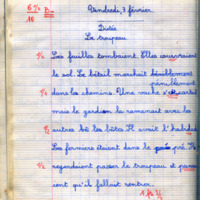 6 ½ B
10
Vendredi, 3 février.
Dictée
Le troupeau
½ Les feuilles tombaient. Elles couvraient
le sol. Le bétail marchait péniblement
péniblement
dans les chemins. Une vache s' parfois
mais le gardien la ramenait avec les
½ autres bê les bêtes Il avait l'habitude
Les fermiers étaient dans le pré
½ regardaient passer le troupeau
cont qu'il fallait rentrer.